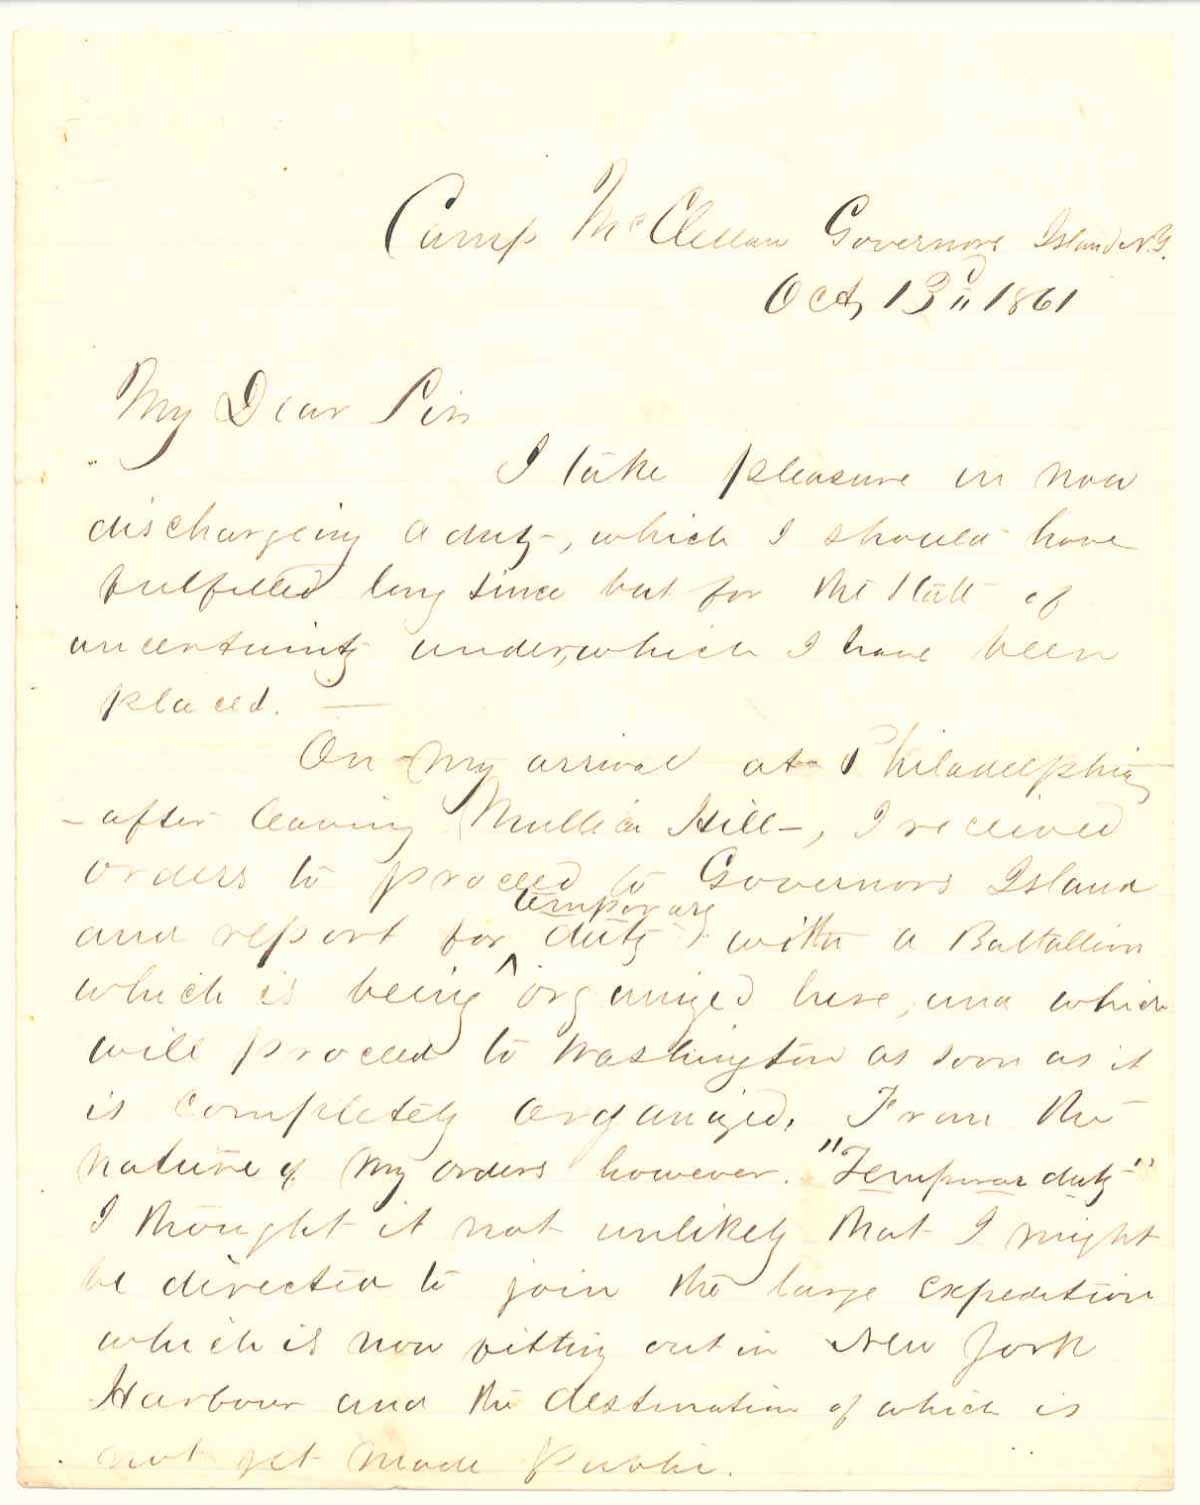 Camp McClellan Governors Island N.Y.
Oct, 13d 1861
My Dear Sir
I take pleasure in now
dischargeing a duty, which I should have
fulfilled long since but for the state of
uncertainty under, which I have been
placed. —
On my arrival at Philadelphia
- after leaving Mullica Hill -, I received
orders to proceed to Governors Island
temporary
and report for ^ duty, with a Battallion
which is being organized here, and which
will proceed to Washington as soon as it
is completely organized. From the
nature of my orders however. "Temporar duty"
I thought it not unlikely that I might
be directed to join the large expedition
which is now fitting out in New York
Harbour and the destination of which is
not yet made Public.